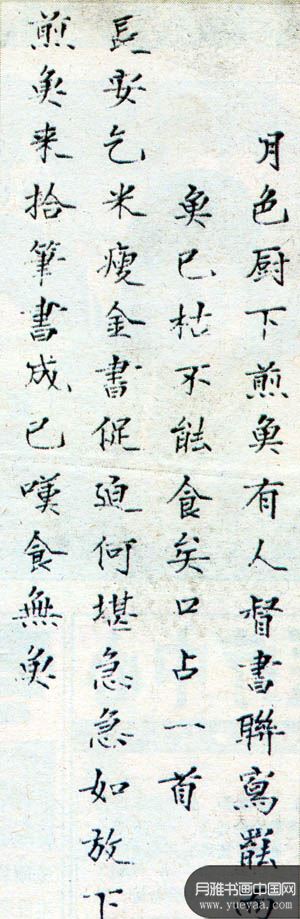 月色厨下煎魚有人督書聯寫罷而
魚已枯不能食矣口占一首
長安乞米瘦金書促迫何堪急急如放下
煎魚来拾筆書成已嘆食無魚
月雅书画中国网
www.yueyaa.com